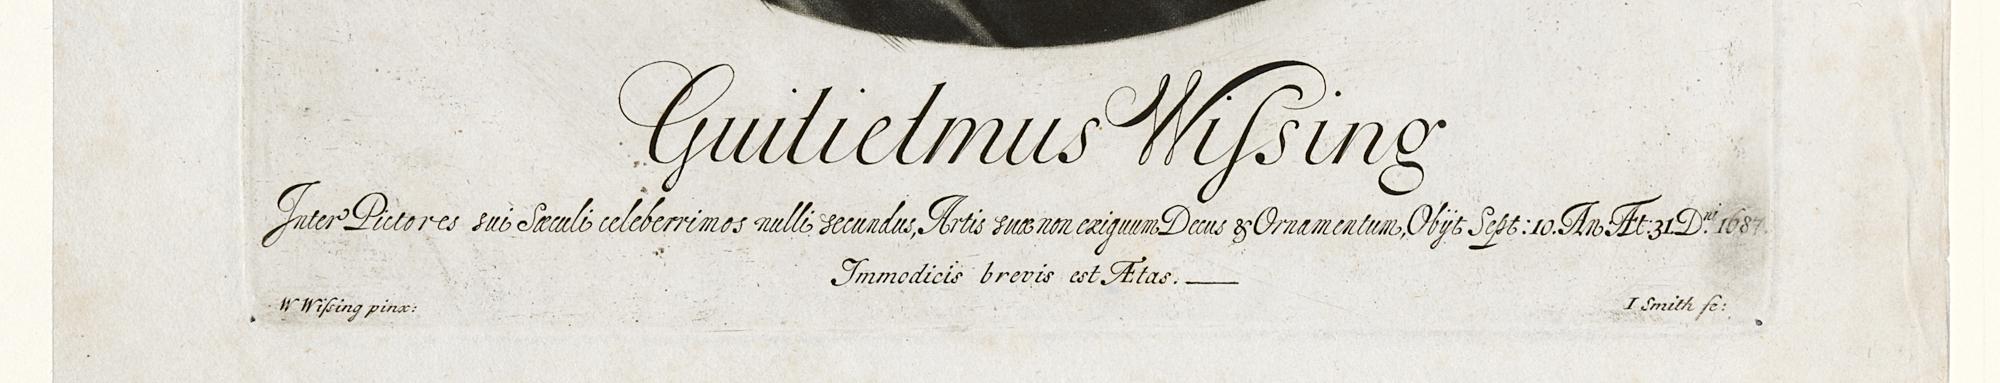 Guilielmus Wiſsing
Inter Pictores sui Sæculi celeberrimos nulli secundus, Artis suæ non exiguum Decus & Ornamentum, Obijt Sept: 10. An. Æt. 31. D.ni 1687.
Immodicis brevis est Ætas.
W Wiſsing pinx:
I Smith fe: